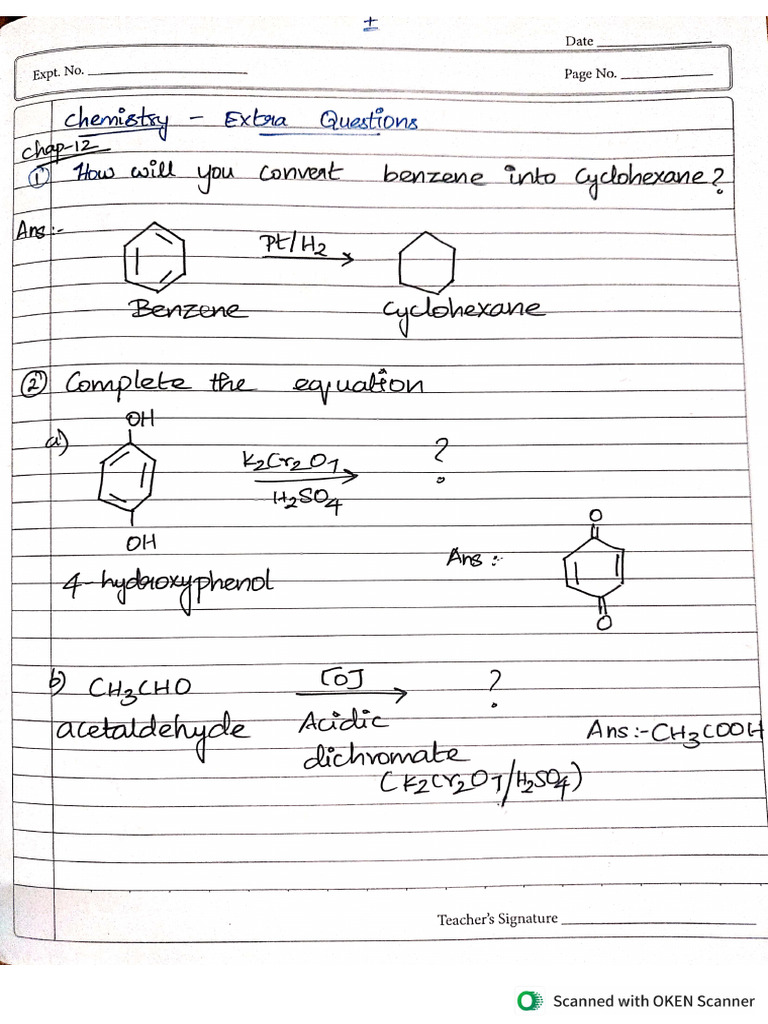 ±
Date
Expt. No.
Page No.
Chemistry - Extra Questions
Chap-12
① How will you convert benzene into cyclohexane?
Ans:-
Pt/H2
Benzene
cyclohexane
② Complete the equation
a)
OH
K2Cr2O7
?
H2SO4
OH
Ans :-
O
O
4-hydroxyphenol
b) CH3CHO
[O]
?
acetaldehyde
Acidic
dichromate
(K2Cr2O7/H2SO4)
Ans:-CH3COOH
Teacher's Signature
Scanned with OKEN Scanner